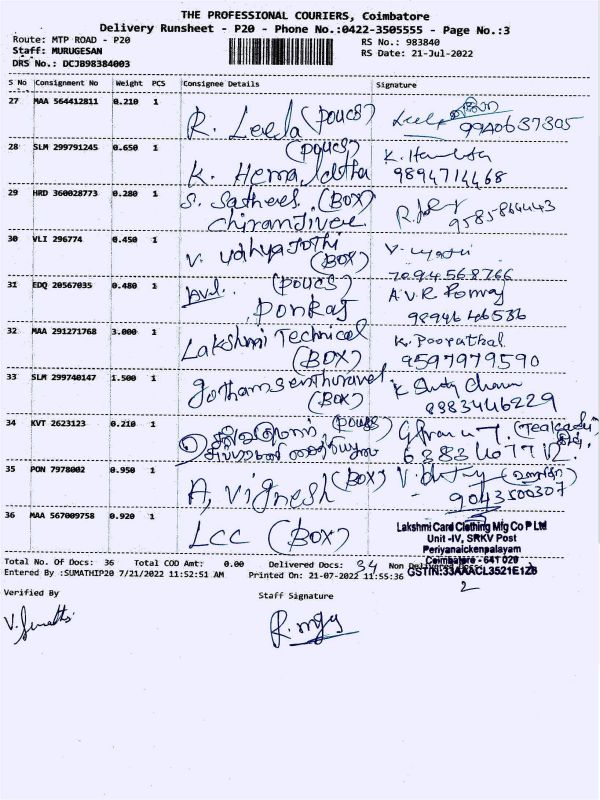 THE PROFESSIONAL COURIERS, Coimbatore
Delivery Runsheet - P20 - Phone No.:0422-3505555 - Page No.:3
Route: MTP ROAD - P20 RS No.: 983840
Staff: MURUGESAN RS Date: 21-Jul-2022
DRS No.: DCJB98384003
S No Consignment No Weight PCS Consignee Details Signature
27 MAA 564412811 0.210 1 R. Leela (POUCS) Leela 9940637305
28 SLM 299791245 0.650 1 (POUCS)
K. Hema latha K. Hemlatha
9894714468
29 HRD 360028773 0.280 1 S. Sathees (BOX)
Chiranjivee 9585864443
30 VLI 296774 0.450 1 V. Udhya Jothi
(BOX) 7094568766
31 EDQ 20567035 0.480 1 (POUCS) A.V.R Ponraj
Ponraj 9894646536
32 MAA 291271768 3.000 1 Lakshmi Technical K. Poopathal
(BOX) 9597979590
33 SLM 299740147 1.500 1 (BOX) 8883446229
34 KVT 2623123 0.210 1 (POUCS)
35 PON 7978002 0.950 1 A, Vignesh (BOX)
9043500307
36 MAA 567009758 0.920 1 LCC (BOX)
Lakshmi Card Clothing Mfg Co P Ltd
Unit -IV, SRKV Post
Periyanaickenpalayam
Coimbatore - 641 020
GSTIN:33AAACL3521E1Z8
Total No. Of Docs: 36 Total COD Amt: 0.00 Delivered Docs: 34 Non Delivered Docs:
2
Entered By :SUMATHIP20 7/21/2022 11:52:51 AM Printed On: 21-07-2022 11:55:36
Verified By Staff Signature